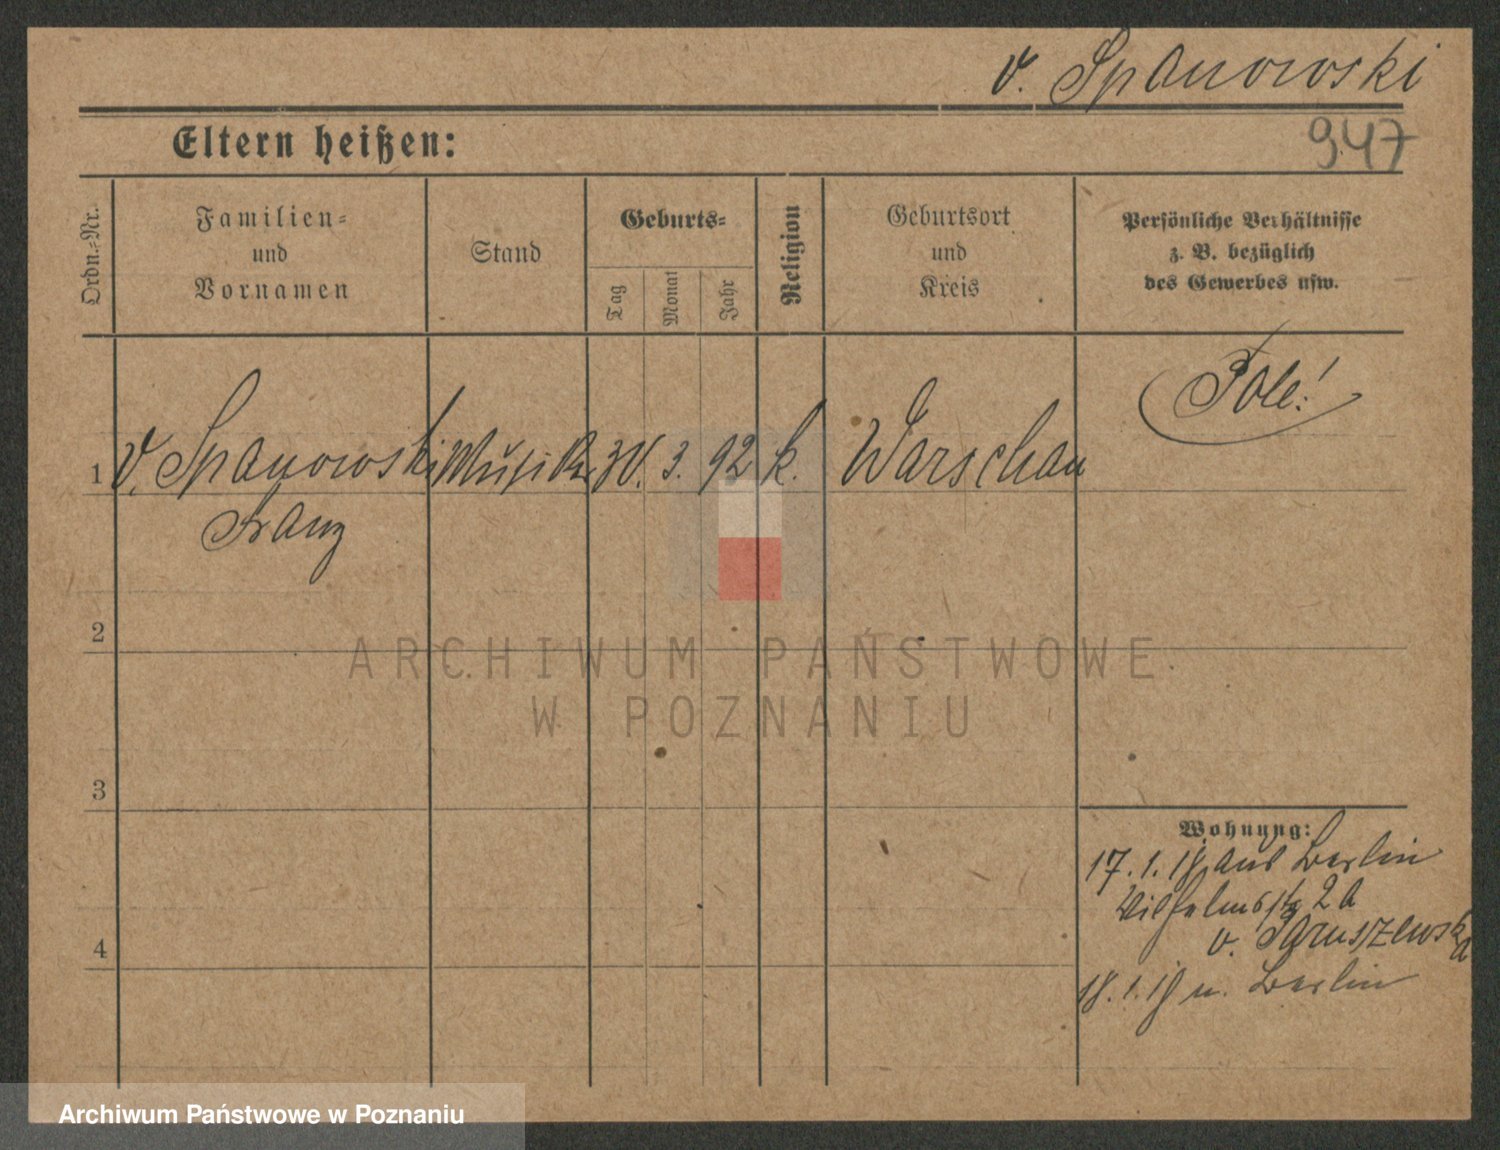 v. Spanowski
Eltern heißen:
947
Ordn.-Nr.
Familien-
und
Vornamen
Stand
Geburts-
Tag
Monat
Jahr
Religion
Geburtsort
und
Kreis
Persönliche Verhältnisse
z. B. bezüglich
des Gewerbes usw.
Pole!
1 v. Spanowski Musiker 30. 3. 92 k. Warschau
Franz
2
ARCHIWUM PAŃSTWOWE
W POZNANIU
3
Wohnung:
17. 1. aus Berlin
Wilhelmstr 2
v.
4
18. 1. n. Berlin
Archiwum Państwowe w Poznaniu